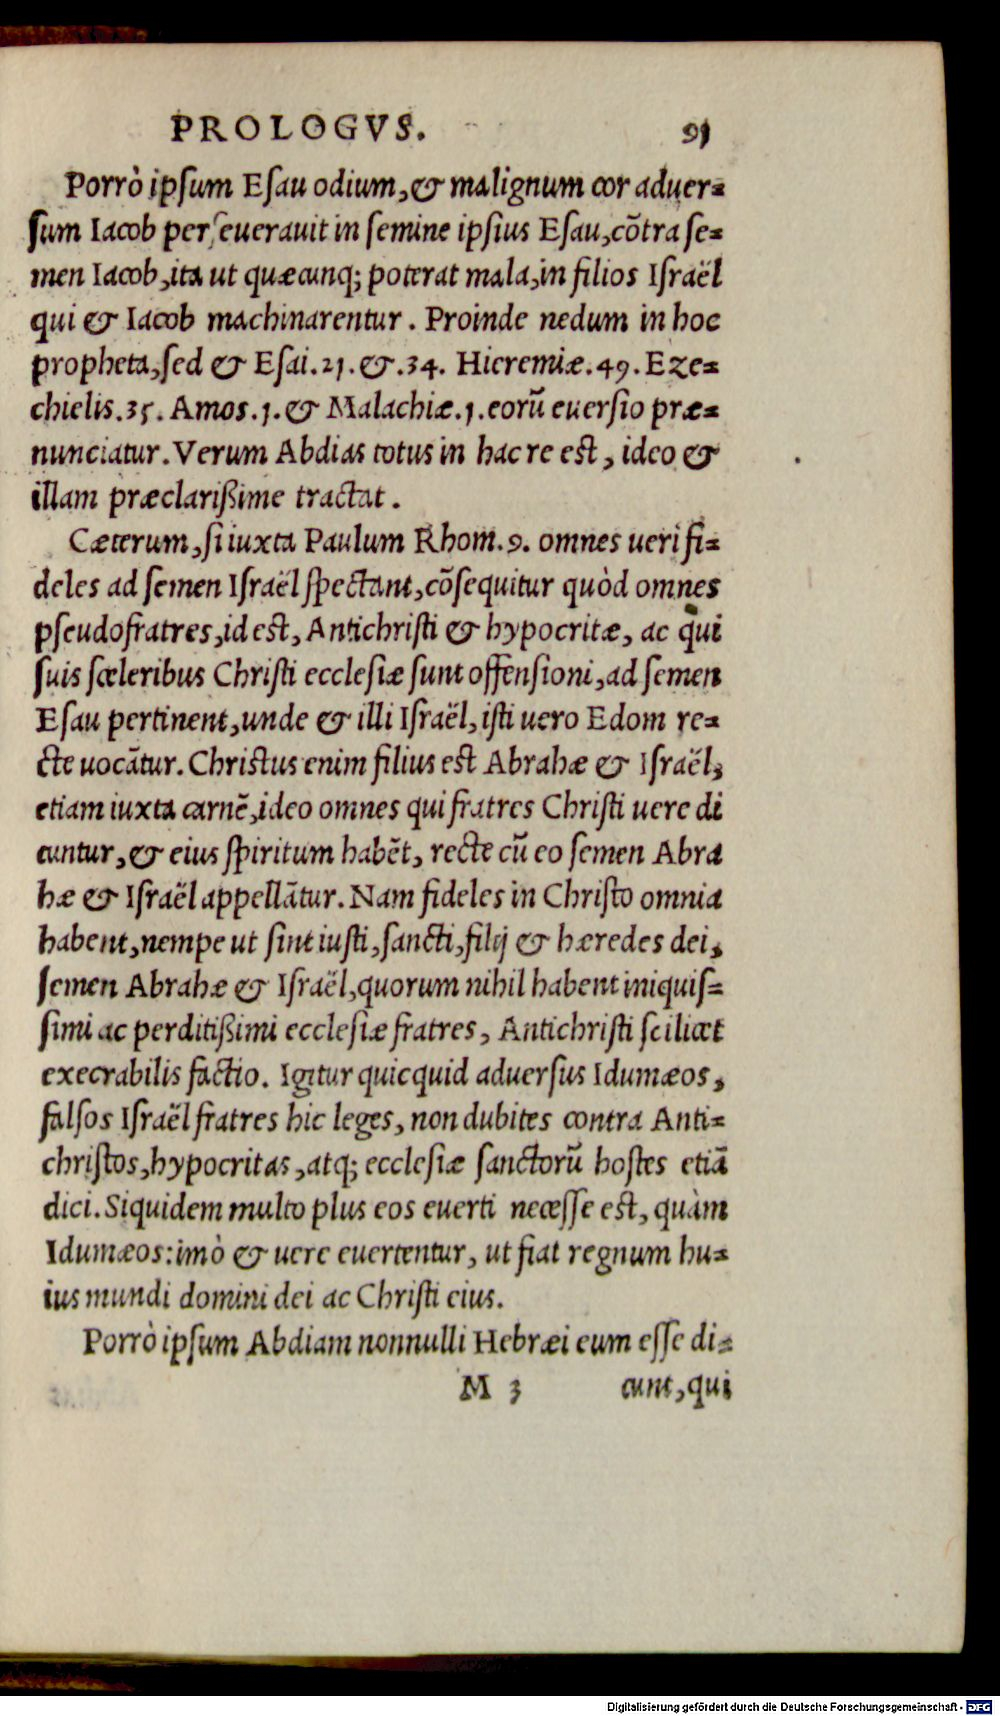 PROLOGVS. 91
Porrò ipſum Eſau odium, & malignum cor aduer=
ſum Iacob perſeuerauit in ſemine ipſius Eſau, cōtra ſe=
men Iacob, ita ut quæcunq; poterat mala, in filios Iſraël
qui & Iacob machinarentur. Proinde nedum in hoc
propheta, ſed & Eſai. 21. &. 34. Hieremiæ. 49. Eze=
chielis. 35. Amos. 1. & Malachiæ. 1. eorū euerſio præ=
nunciatur. Verum Abdias totus in hac re est, ideo &
illam præclarißime tractat.
Cæterum, ſi iuxta Paulum Rhom. 9. omnes ueri fi=
deles ad ſemen Iſraël ſpectant, cōſequitur quòd omnes
pſeudofratres, id est, Antichriſti & hypocritæ, ac qui
ſuis ſceleribus Chriſti eccleſiæ ſunt offenſioni, ad ſemen
Eſau pertinent, unde & illi Iſraël, iſti uero Edom re=
cte uocātur. Chriſtus enim filius est Abrahæ & Iſraël,
etiam iuxta carnē, ideo omnes qui fratres Chriſti uere di
cuntur, & eius ſpiritum habēt, recte cū eo ſemen Abra
hæ & Iſraël appellātur. Nam fideles in Chriſto omnia
habent, nempe ut ſint iuſti, ſancti, filij & hæredes dei,
ſemen Abrahæ & Iſraël, quorum nihil habent iniquiſ=
ſimi ac perditißimi eccleſiæ fratres, Antichriſti ſcilicet
execrabilis factio. Igitur quicquid aduerſus Idumæos,
falſos Iſraël fratres hic leges, non dubites contra Anti=
chriſtos, hypocritas, atq; eccleſiæ ſanctorū hoſtes etiā
dici. Siquidem multo plus eos euerti neceſſe est, quàm
Idumæos: imò & uere euertentur, ut fiat regnum hu=
ius mundi domini dei ac Chriſti eius.
Porrò ipſum Abdiam nonnulli Hebræi eum eſſe di=
M 3 cunt, qui
Digitalisierung gefördert durch die Deutsche Forschungsgemeinschaft - DFG